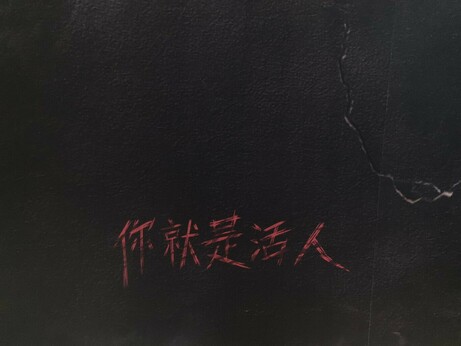 你就是活人